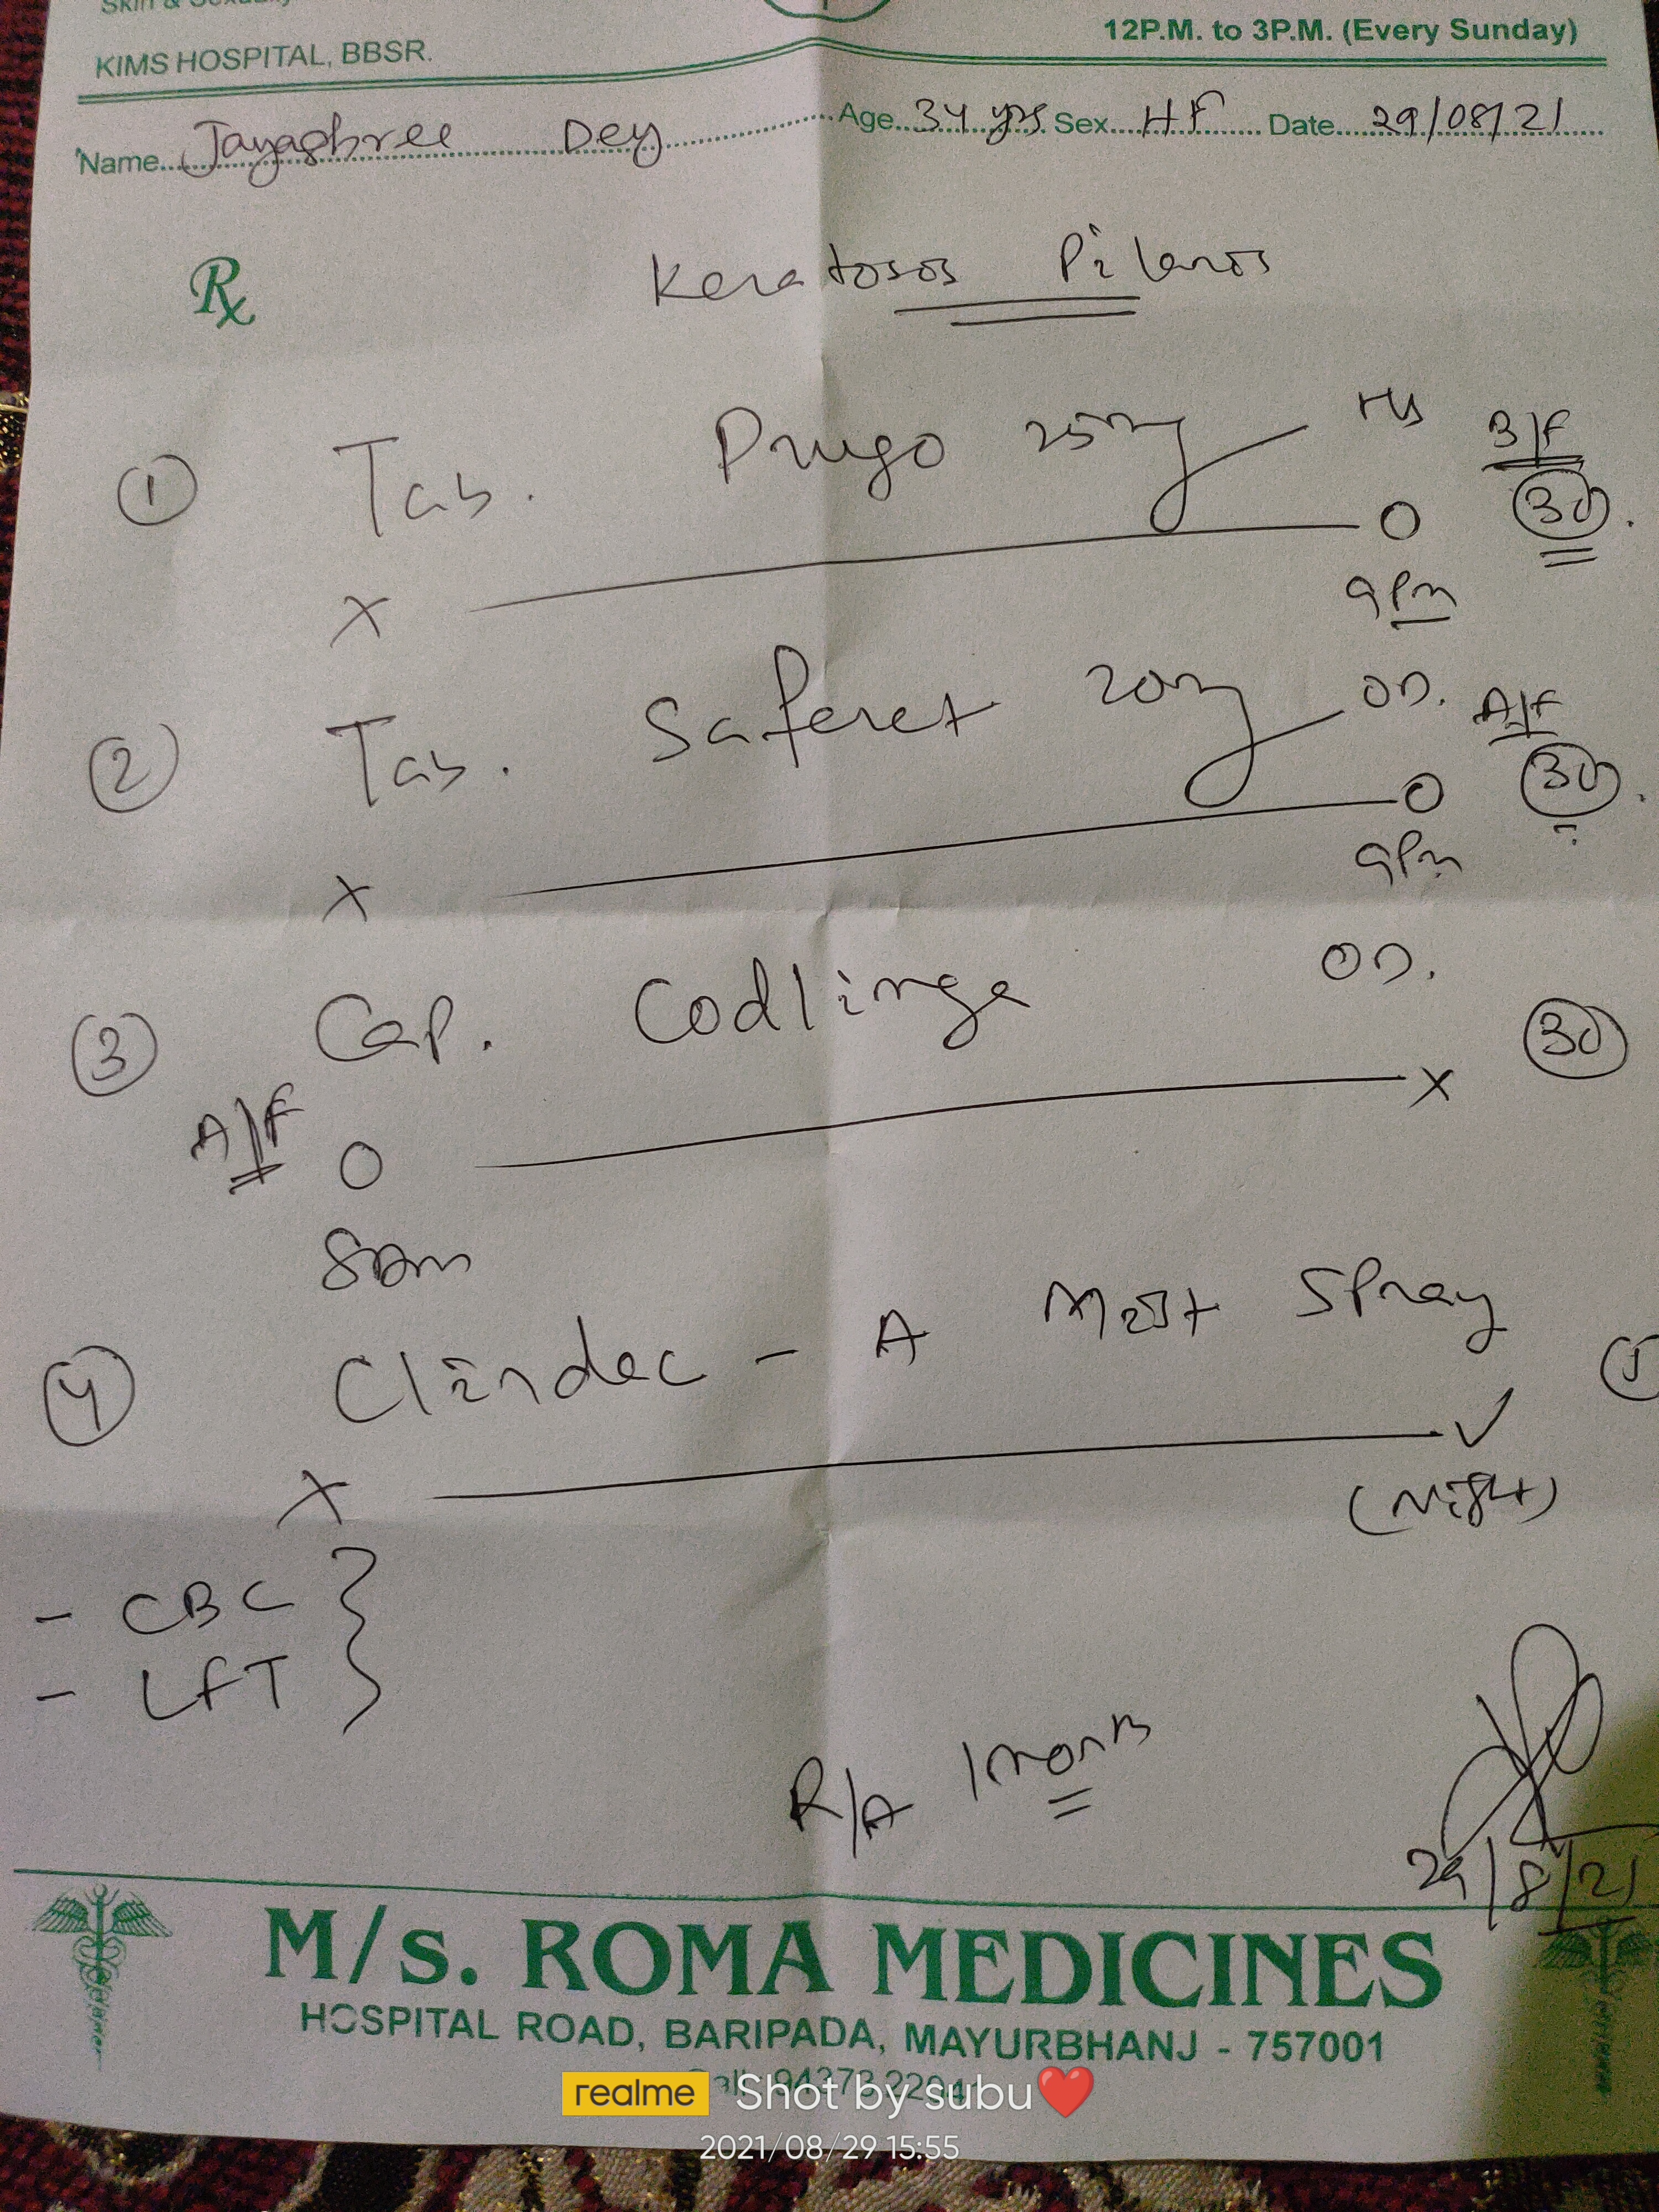 KIMS HOSPITAL, BBSR.
12P.M. to 3P.M. (Every Sunday)
Name Jayashree Dey Age 34 yrs Sex HF Date 29/08/21
Rx Keratosos Pilaros
① Tab. Prugo 25mg HS B/F
X O 30
9Pm
② Tab. Saferet 20mg OD. A/F
X O 30
9Pm
③ Cap. Codlinga OD.
A/F O X 30
8Am
④ Clindac - A Mist Spray
X ✓
(Night)
- CBC
- LFT
R/A 1 month
29/8/21
M/s. ROMA MEDICINES
HOSPITAL ROAD, BARIPADA, MAYURBHANJ - 757001
realme Shot by subu❤️
2021/08/29 15:55